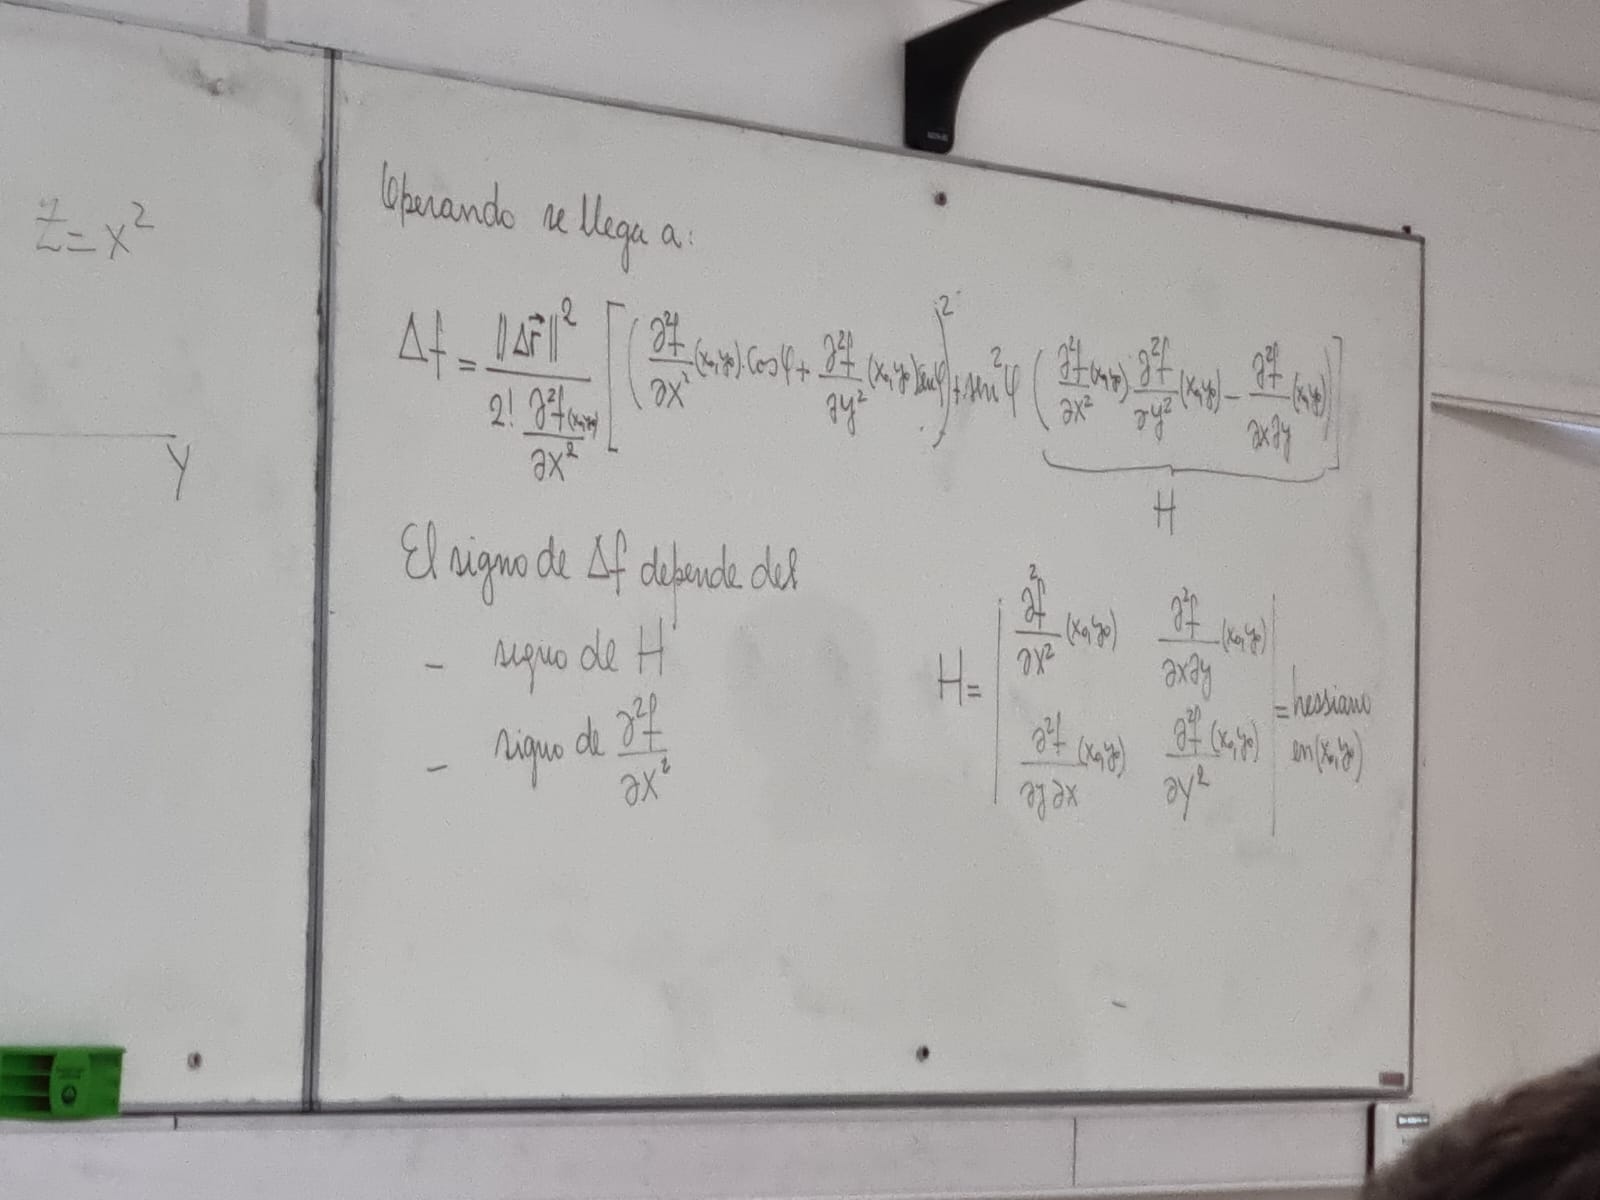 Z=x²
y
Operando se llega a:
Δf = ‖Δr⃗‖² / (2! ∂²f/∂x² (x₀,y₀)) [ ( ∂²f/∂x² (x₀,y₀)·cosφ + ∂²f/∂y² (x₀,y₀) senφ )² + sen²φ ( ∂²f/∂x² (x₀,y₀)· ∂²f/∂y² (x₀,y₀) − ∂²f/∂x∂y (x₀,y₀) ) ]
H
El signo de Δf depende del
- signo de H
- signo de ∂²f/∂x²
H = | ∂²f/∂x² (x₀,y₀) ∂²f/∂x∂y (x₀,y₀) |
| ∂²f/∂y∂x (x₀,y₀) ∂²f/∂y² (x₀,y₀) | = hessiano
en (x₀,y₀)